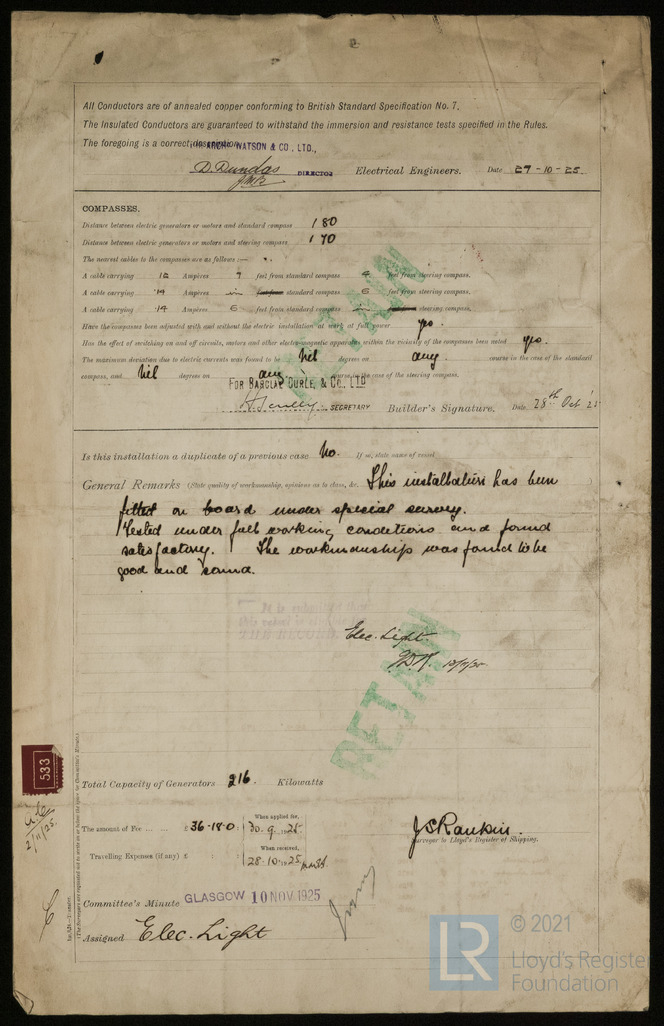 All Conductors are of annealed copper conforming to British Standard Specification No. 7.
The Insulated Conductors are guaranteed to withstand the immersion and resistance tests specified in the Rules.
The foregoing is a correct description
WATSON & CO., LTD.,
D. Dundas
DIRECTOR Electrical Engineers. Date 27-10-25
COMPASSES.
Distance between electric generators or motors and standard compass 180
Distance between electric generators or motors and steering compass 170
The nearest cables to the compasses are as follows:—
A cable carrying 12 Ampères 7 feet from standard compass 4 feet from steering compass.
A cable carrying 14 Ampères in standard compass 6 feet from steering compass.
A cable carrying 14 Ampères 6 feet from standard compass steering compass.
Have the compasses been adjusted with and without the electric installation at work at full power yes.
Has the effect of switching on and off circuits, motors and other electro-magnetic apparatus within the vicinity of the compasses been noted yes.
The maximum deviation due to electric currents was found to be Nil degrees on any. course in the case of the standard
compass, and Nil degrees on any course in the case of the steering compass.
FOR BARCLAY CURLE, & CO., LTD
SECRETARY Builder's Signature. Date 28th Oct '25
Is this installation a duplicate of a previous case No. If so, state name of vessel
General Remarks (State quality of workmanship, opinions as to class, &c. This installation has been
fitted on board under special survey.
Tested under full working conditions and found
satisfactory. The workmanship was found to be
good and sound.
RETAIN
Elec. Light.
RETAIN
533
Total Capacity of Generators 216. Kilowatts
2/11/25.
The amount of Fee ... ... £36-18-0
When applied for,
30.9.1925
Travelling Expenses (if any) £
When received,
28.10.1925
J S Rankin.
Surveyor to Lloyd's Register of Shipping.
Committee's Minute GLASGOW 10 NOV 1925
Assigned Elec. Light
© 2021
LR Lloyd's Register
Foundation